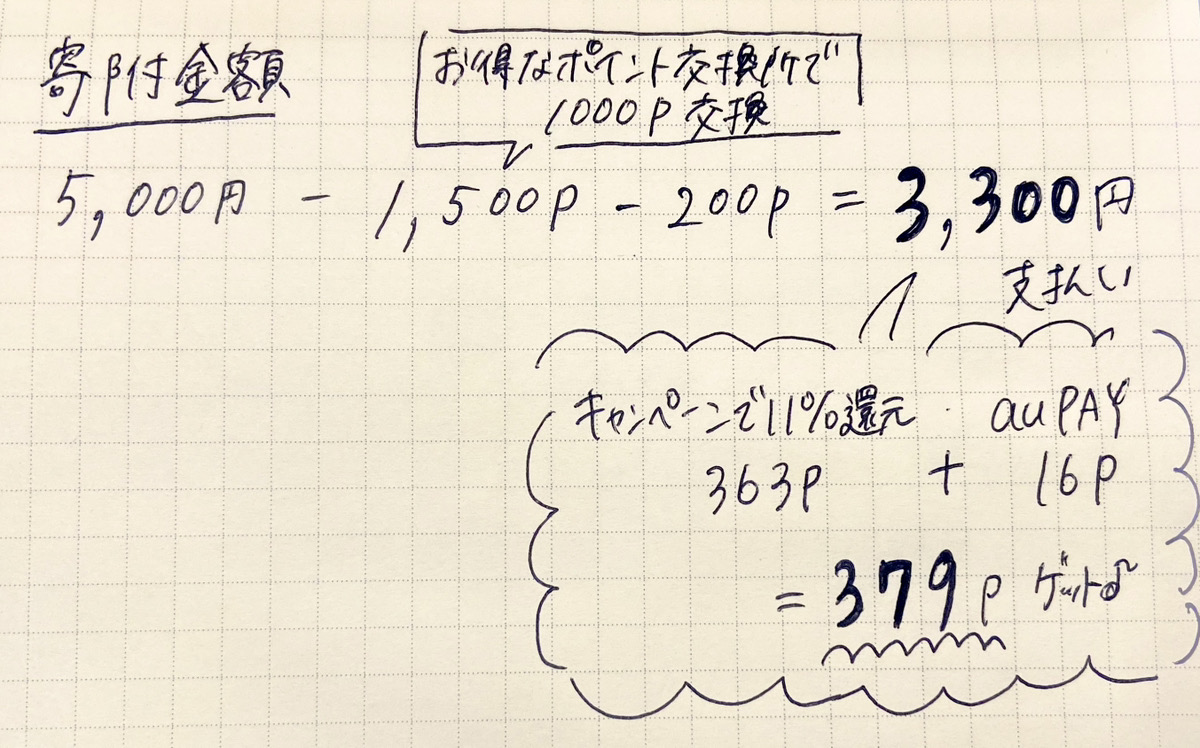 寄附金額
お得なポイント交換所で
1000P 交換
5,000円 - 1,500P - 200P = 3,300円
支払い
キャンペーンで11%還元 auPAY
363P + 16P
= 379P ゲット♂